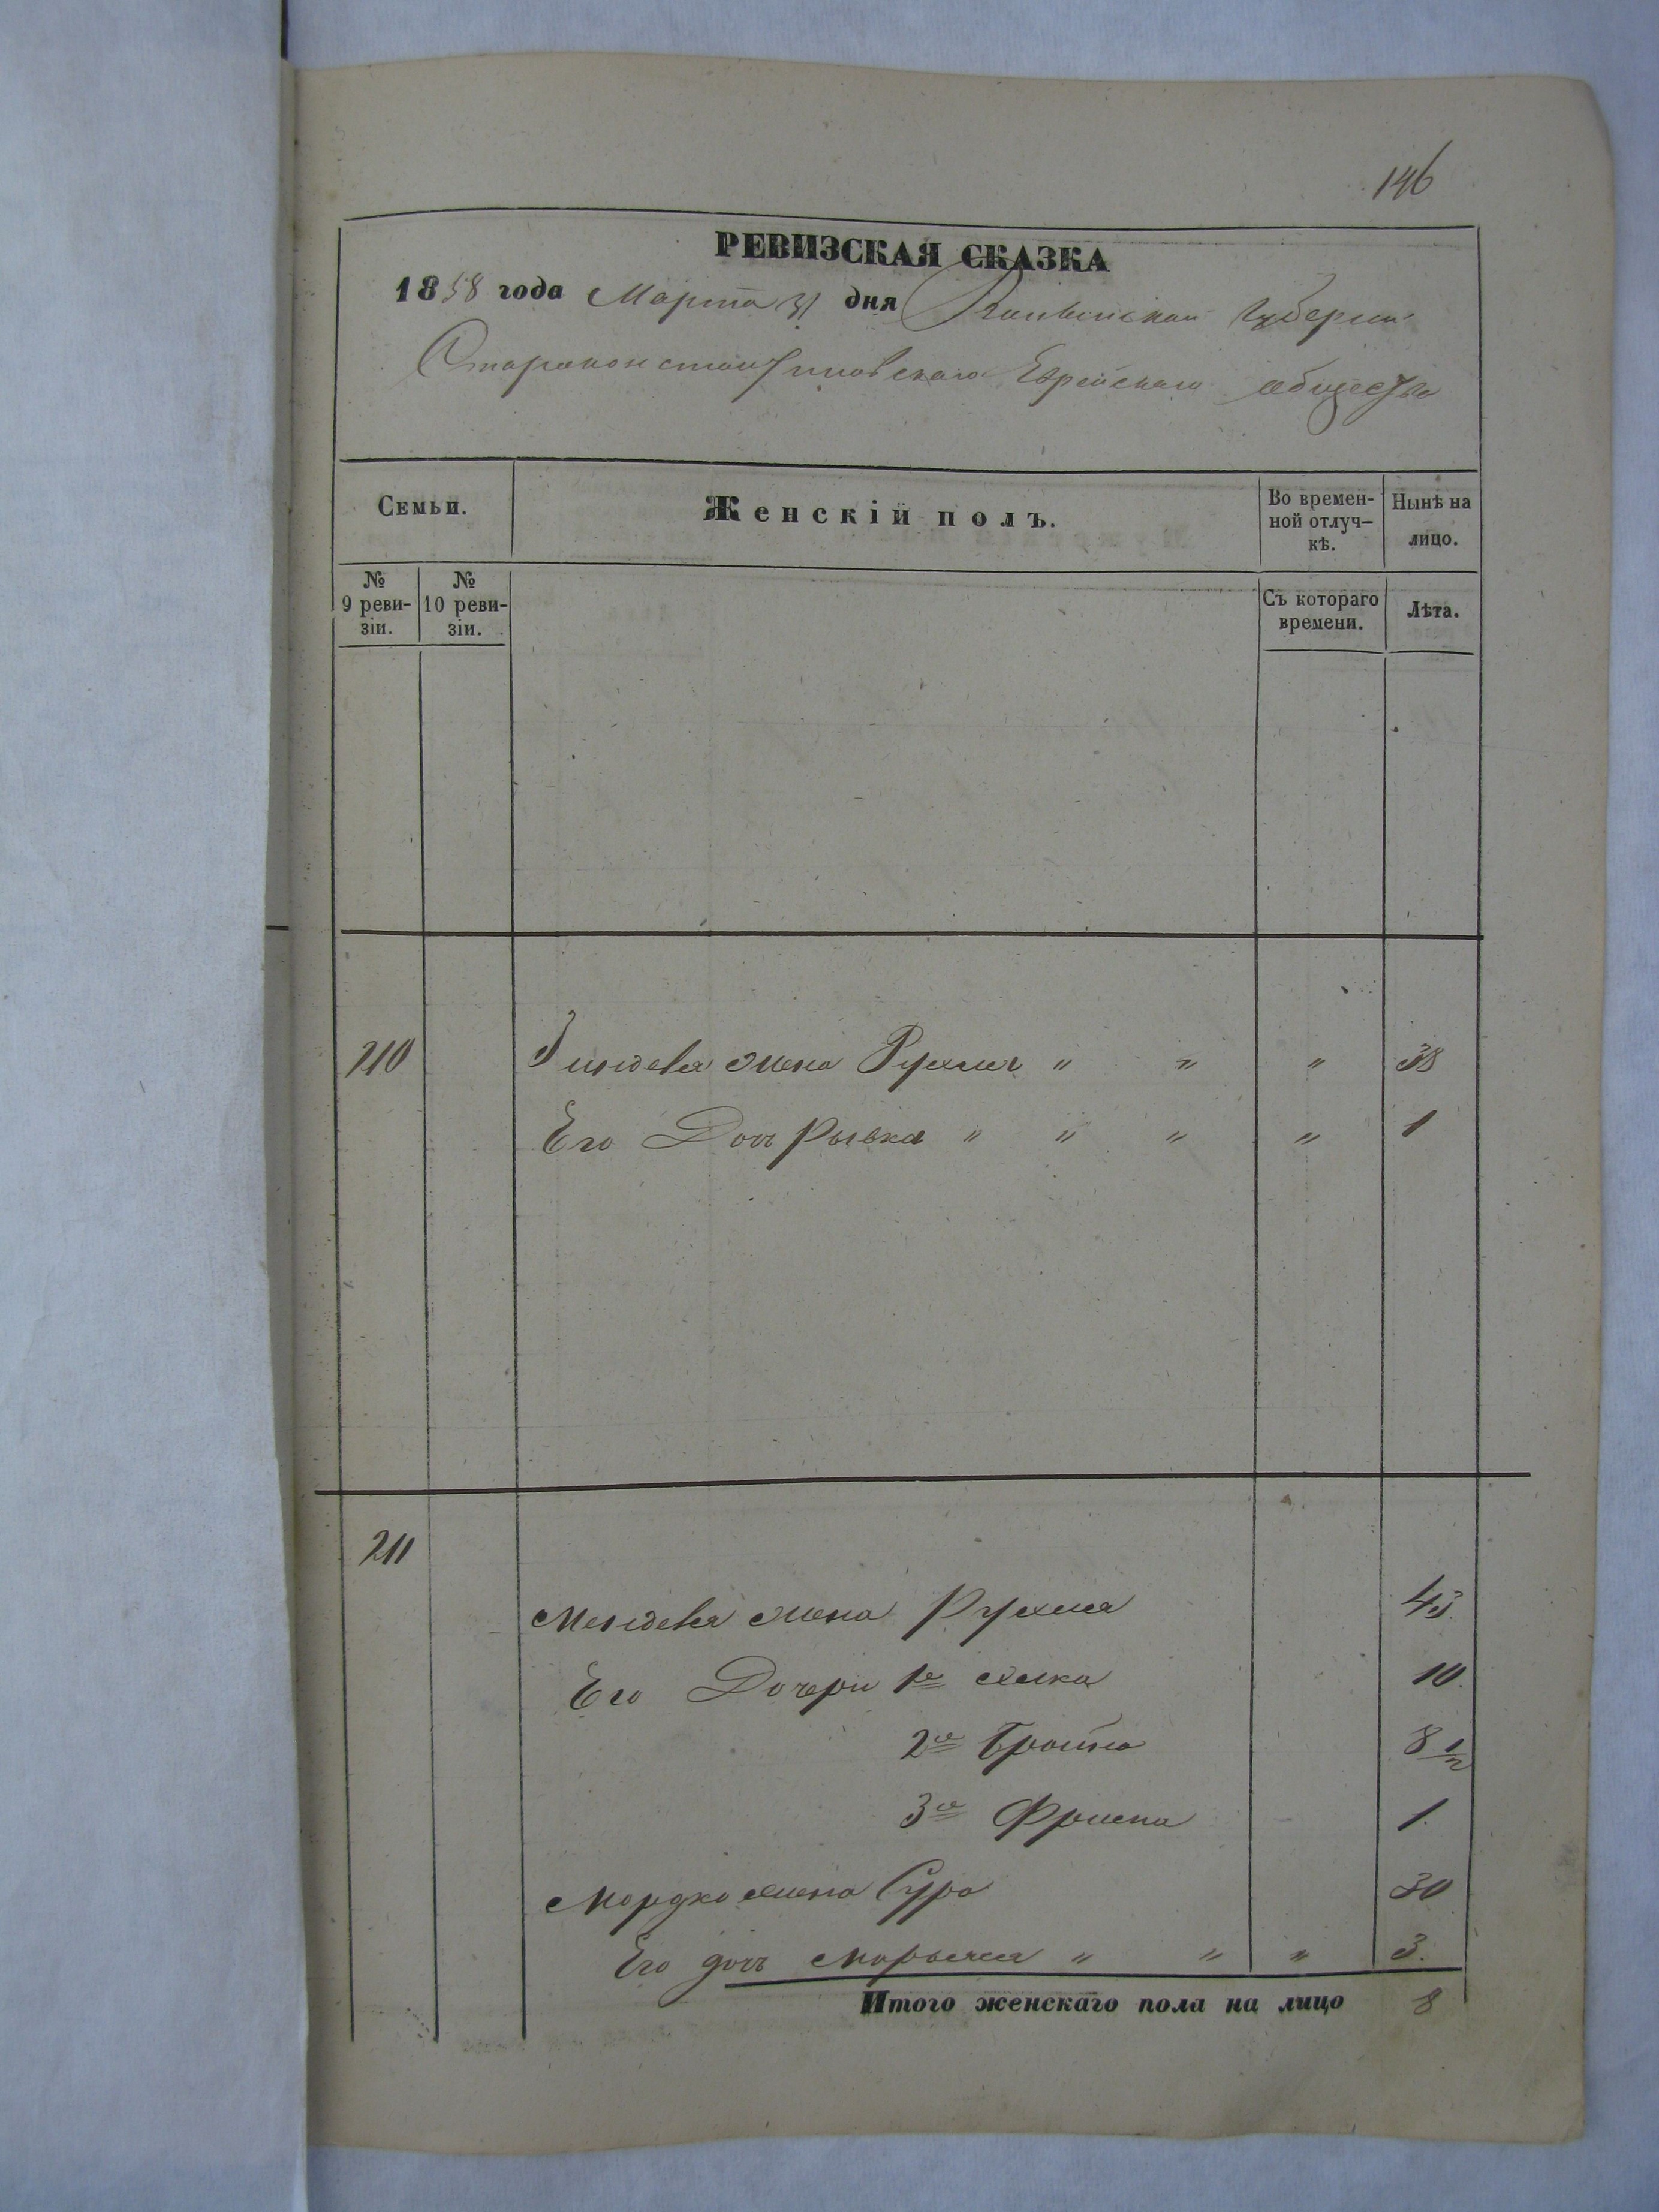 146
РЕВИЗСКАЯ СКАЗКА
1858 года Марта 31 дня Волынской Губернии
Староконстантиновскаго Еврейскаго общества
Семьи.
Женскій полъ.
Во времен-
ной отлуч-
кѣ.
Нынѣ на
лицо.
№
9 реви-
зіи.
№
10 реви-
зіи.
Съ котораго
времени.
Лѣта.
210 жена Рухля " " " 38
Его Дочь Рывка " " " " 1
211
Менделя жена Рухля 43
Его Дочери 1я 10.
2я 8 1/2
3я 1.
Мордко жена Сура 30
Его дочь Марьяся " " " 3.
Итого женскаго пола на лицо 8